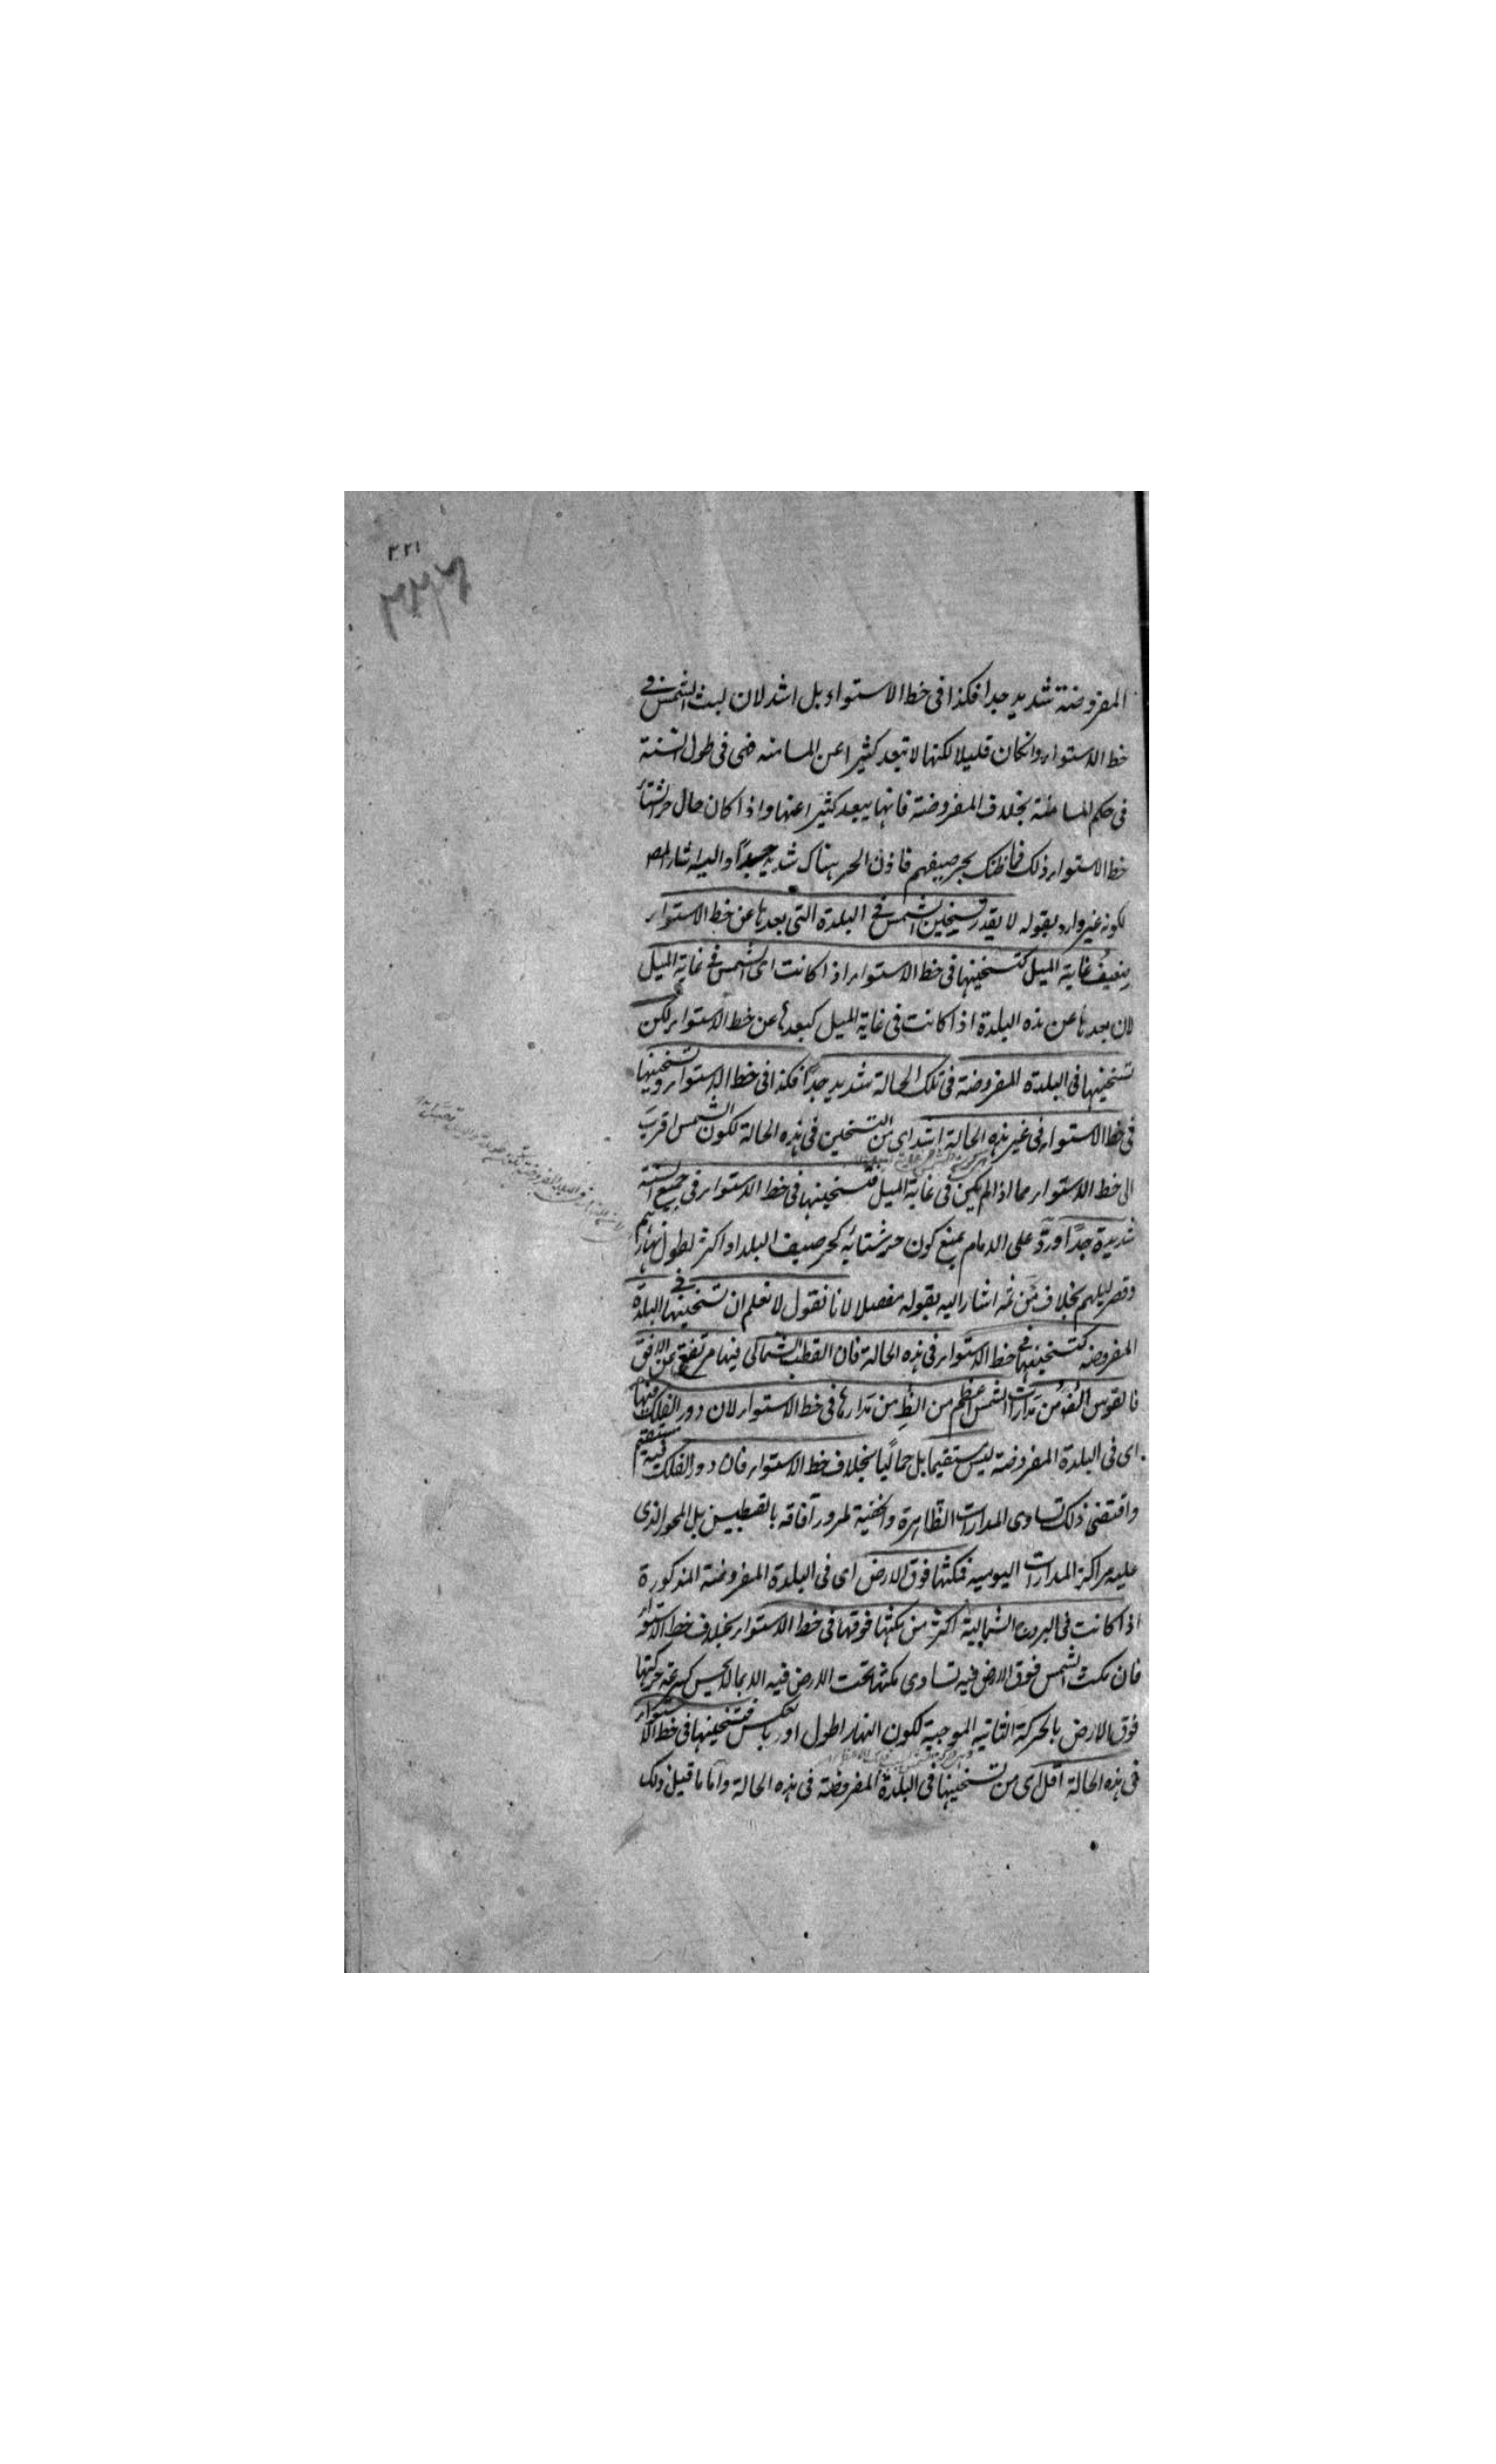 ٣٢١
المفروضة شديد جدا فكذا فى خط الاستواء بل اشد لان لبث الشمس فى
خط الاستواء وانكان قليلا لكنها لا تبعد كثيرا عن المسامته فهى فى طول السنة
فى حكم المسامتة بخلاف المفروضة فانها يبعد كثيرا عنها واذا كان حال حر الشتاء
خط الاستواء ذلك فما ظنك بحر صيفهم فاذن الحر هناك شديد جدا واليه اشار المص
لكونه غير وارد بقوله لا يقدر تسخين الشمس فى البلدة التى بعدها عن خط الاستواء
ضعيف غاية الميل كتسخينها فى خط الاستواء اذا كانت اى الشمس فى غاية الميل
لان بعدها عن هذه البلدة اذا كانت فى غاية الميل كبعدها عن خط الاستواء لكن
تسخينها فى البلدة المفروضة فى تلك الحالة شديد جدا فكذا فى خط الاستواء وتسخينها
فى خط الاستواء فى غير هذه الحالة اشد اى من التسخين فى هذه الحالة لكون الشمس اقرب
الى خط الاستواء مما اذا لم يكن فى غاية الميل فتسخينها فى خط الاستواء فى جميع السنة
شديدة جدا ورد على الامام بمنع كون حر شتائه كحر صيف البلد او اكثر لطول نهارهم
وقصر ليلهم بخلاف من ثمه اشار اليه بقوله مفصلا لانا نقول لا نعلم ان تسخينها فى البلدة
المفروضه كتسخينها فى خط الاستواء فى هذه الحالة فان القطب الشمالى فيها مرتفع عن الافق
فالقوس الظ من مدارات الشمس اعظم من الظ من مدارها فى خط الاستواء لان دور الفلك فيها
اى فى البلدة المفروضة ليس مستقيما بل حمائليا بخلاف خط الاستواء فان دور الفلك فيه مستقيم
واقتضى ذلك تساوى المدارات الظاهرة والخفية لمرور آفاقه بالقطبين بل المحور الذى
عليه مراكز المدارات اليوميه فمكثها فوق الارض اى فى البلدة المفروضة المذكورة
اذا كانت فى البروج الشمالية اكثر من مكثها فوقها فى خط الاستواء بخلاف خط الاستواء
فان مكث الشمس فوق الارض فيه تساوى مكثها تحت الارض فيه الا بما لا يحس كسرعة حركتها
فوق الارض بالحركة الثانيه الموجبة لكون النهار اطول او بالعكس فتسخينها فى خط الاستواء
فى هذه الحالة اقل اى من تسخينها فى البلدة المفروضة فى هذه الحالة واما ما قيل ذلك